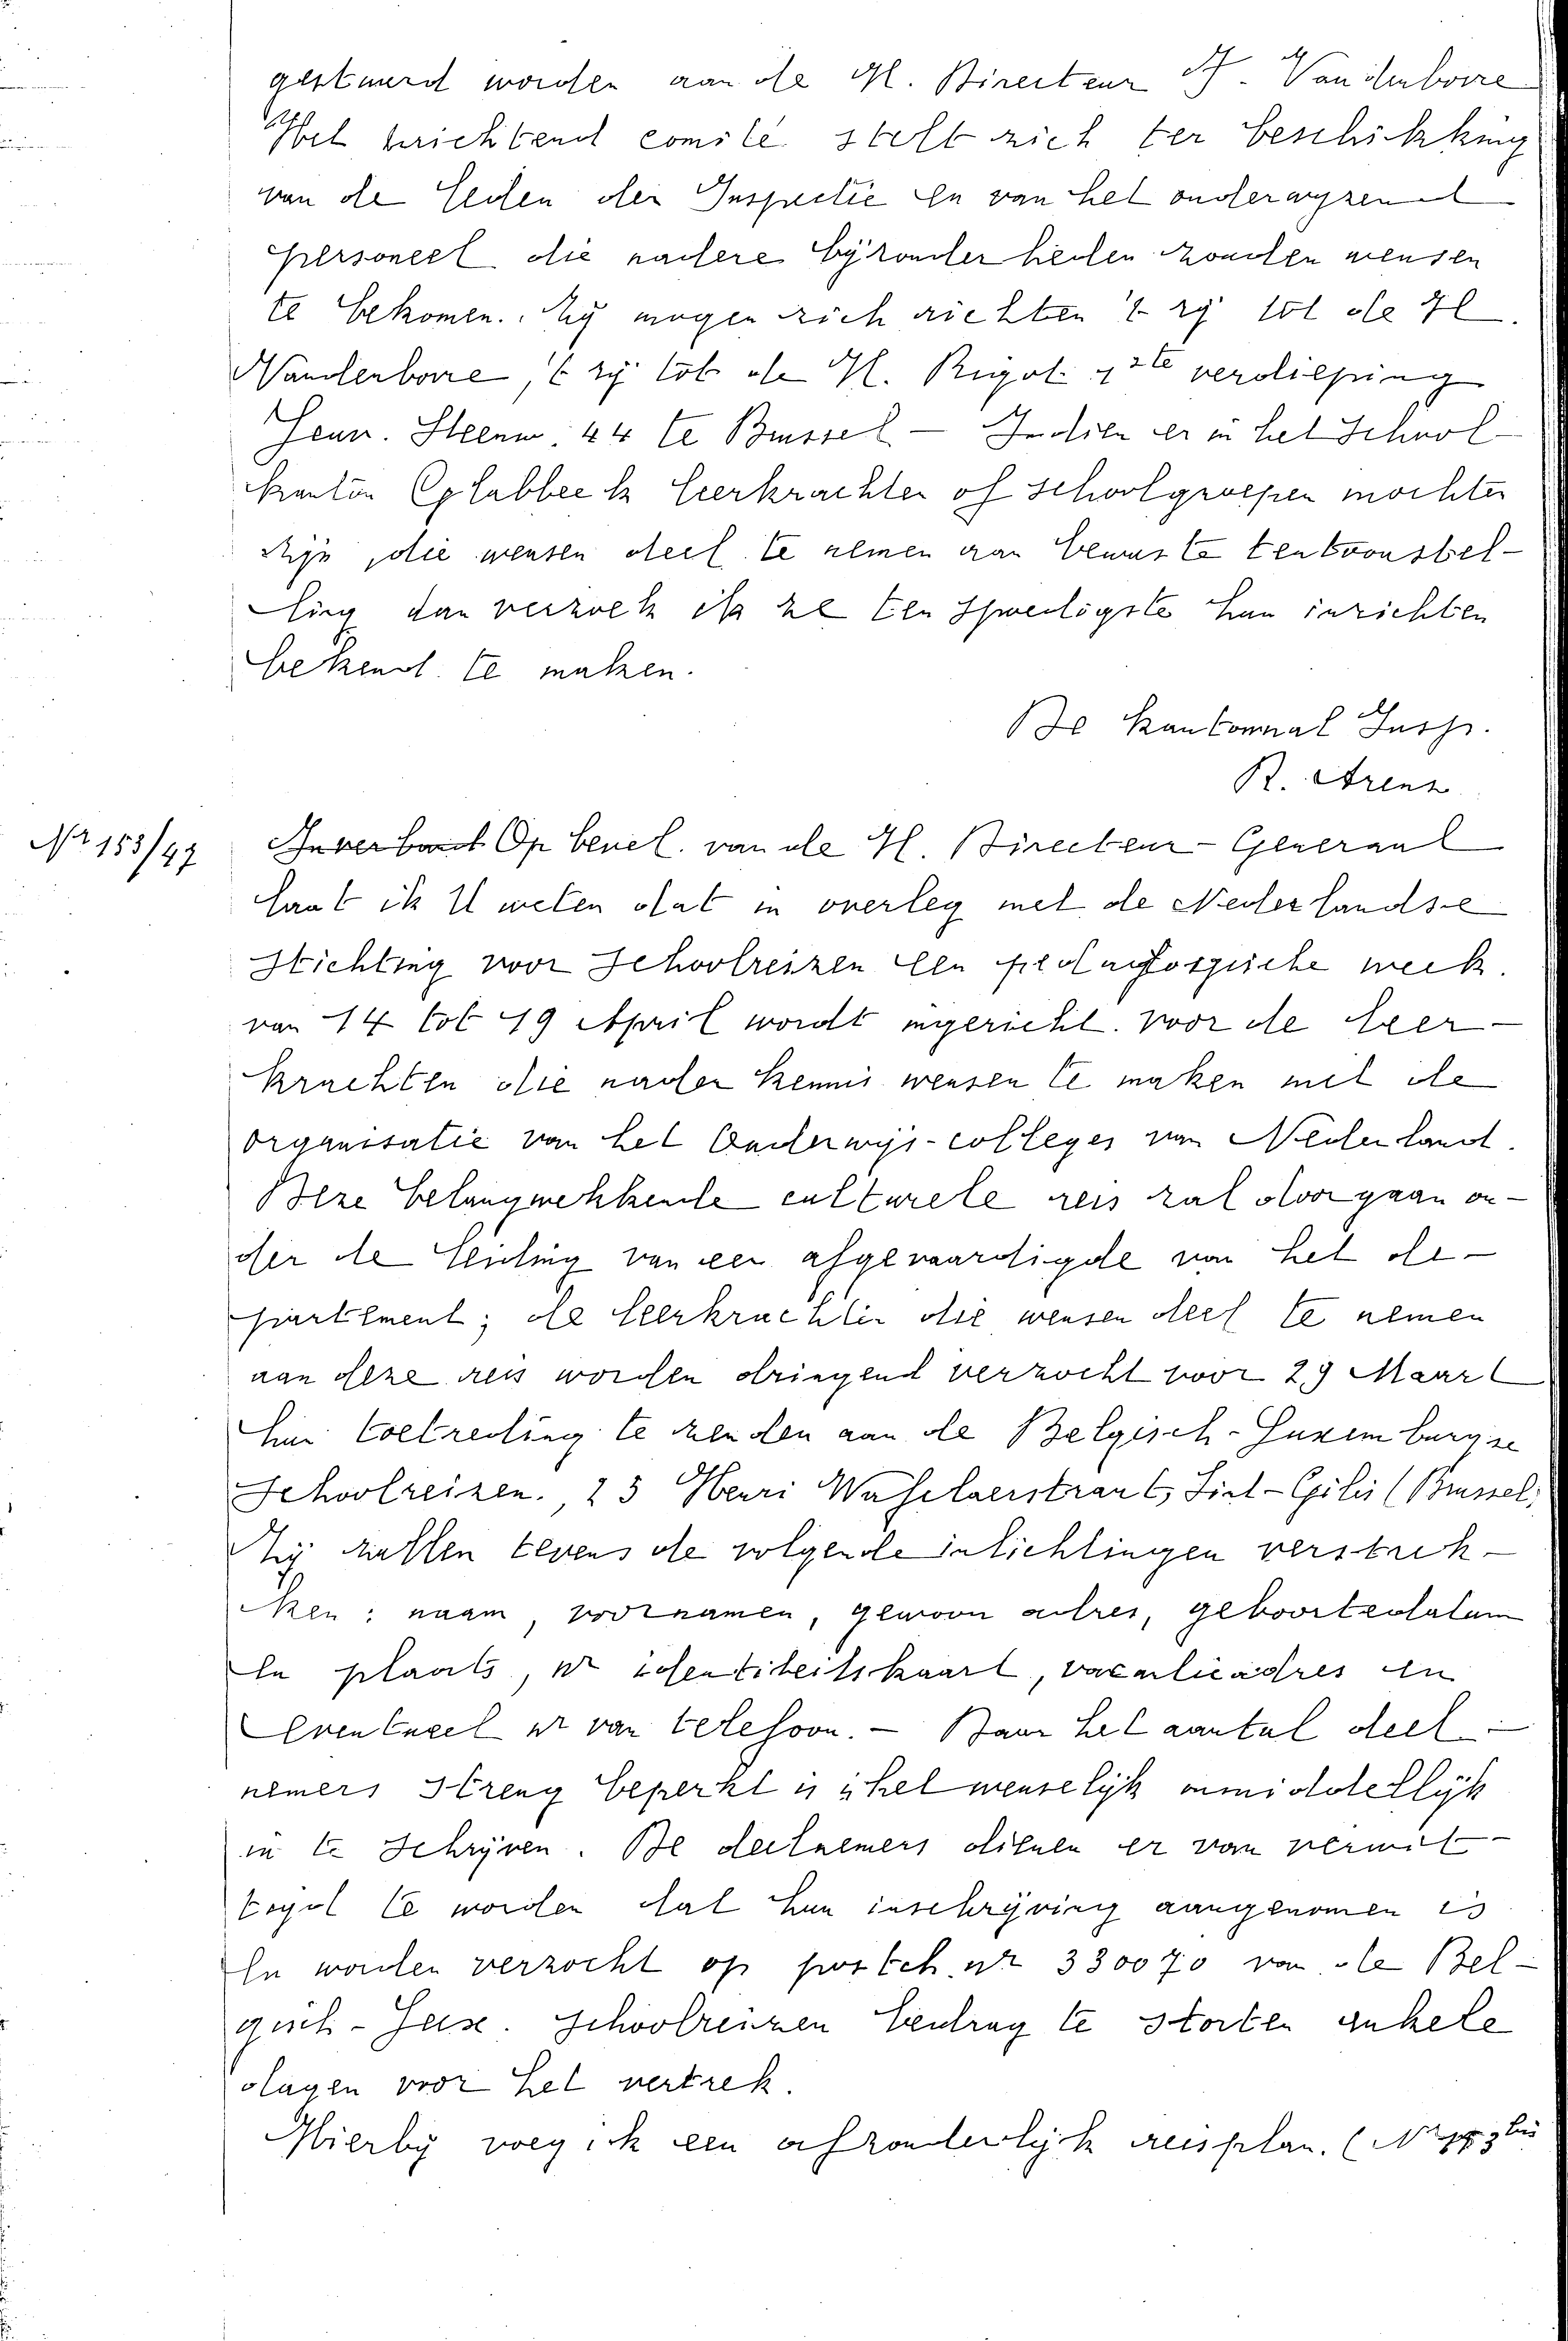 gestuurd worden aan de H. Directeur A. Vandenborre
Het berichtend comité stelt zich ter beschikking
van de Leden der Inspectie en van het onderwyzend
personeel die nadere byzonderheden zouden wensen
te bekomen. Zy mogen zich richten 't zy tot de H.
Vandenborre, 't zy tot de H. Rigot 4de verdieping
Leuv. Steenw. 44 te Brussel – Indien er in het School-
kanton Glabbeek Leerkrachten of schoolgroepen mochten
zijn, die wensen deel te nemen aan bewuste tentoonstel-
ling dan verzoek ik ze ten spoedigste hun inrichten
bekend te maken.
De Kantonnal Insp.
R. Arens
Nr 153/47
In verband Op bevel van de H. Directeur-Generaal
laat ik U weten dat in overleg met de Nederlandse
Stichting voor Schoolreizen een pedagogische week
van 14 tot 19 April wordt ingericht voor de leer-
krachten die nader kennis wensen te maken met de
organisatie van het Onderwijs-colleges van Nederland.
Deze belangwekkende culturele reis zal doorgaan on-
der de Leiding van een afgevaardigde van het de-
partement; de leerkrachten die wensen deel te nemen
aan deze reis worden dringend verzocht voor 29 Maart
hun toetreding te zenden aan de Belgisch-Luxemburgse
Schoolreizen, 23 Henri Wafelaerstraat, Sint-Gilis (Brussel)
Zij zullen tevens de volgende inlichtingen verstrek-
ken: naam, voornamen, gewoon adres, geboortedatum
en plaats, nr identiteitskaart, vacantieadres en
Eventueel nr van telefoon. – Daar het aantal deel-
nemers streng beperkt is is het wenselijk onmiddellijk
in te schrijven. De deelnemers dienen er van verwit-
tigd te worden dat hun inschrijving aangenomen is
En worden verzocht op postch. nr 330070 van de Bel-
gisch-Luxe. Schoolreizen bedrag te storten enkele
dagen voor het vertrek.
Hierby voeg ik een afzonderlyk reisplan. (Nr 153bis